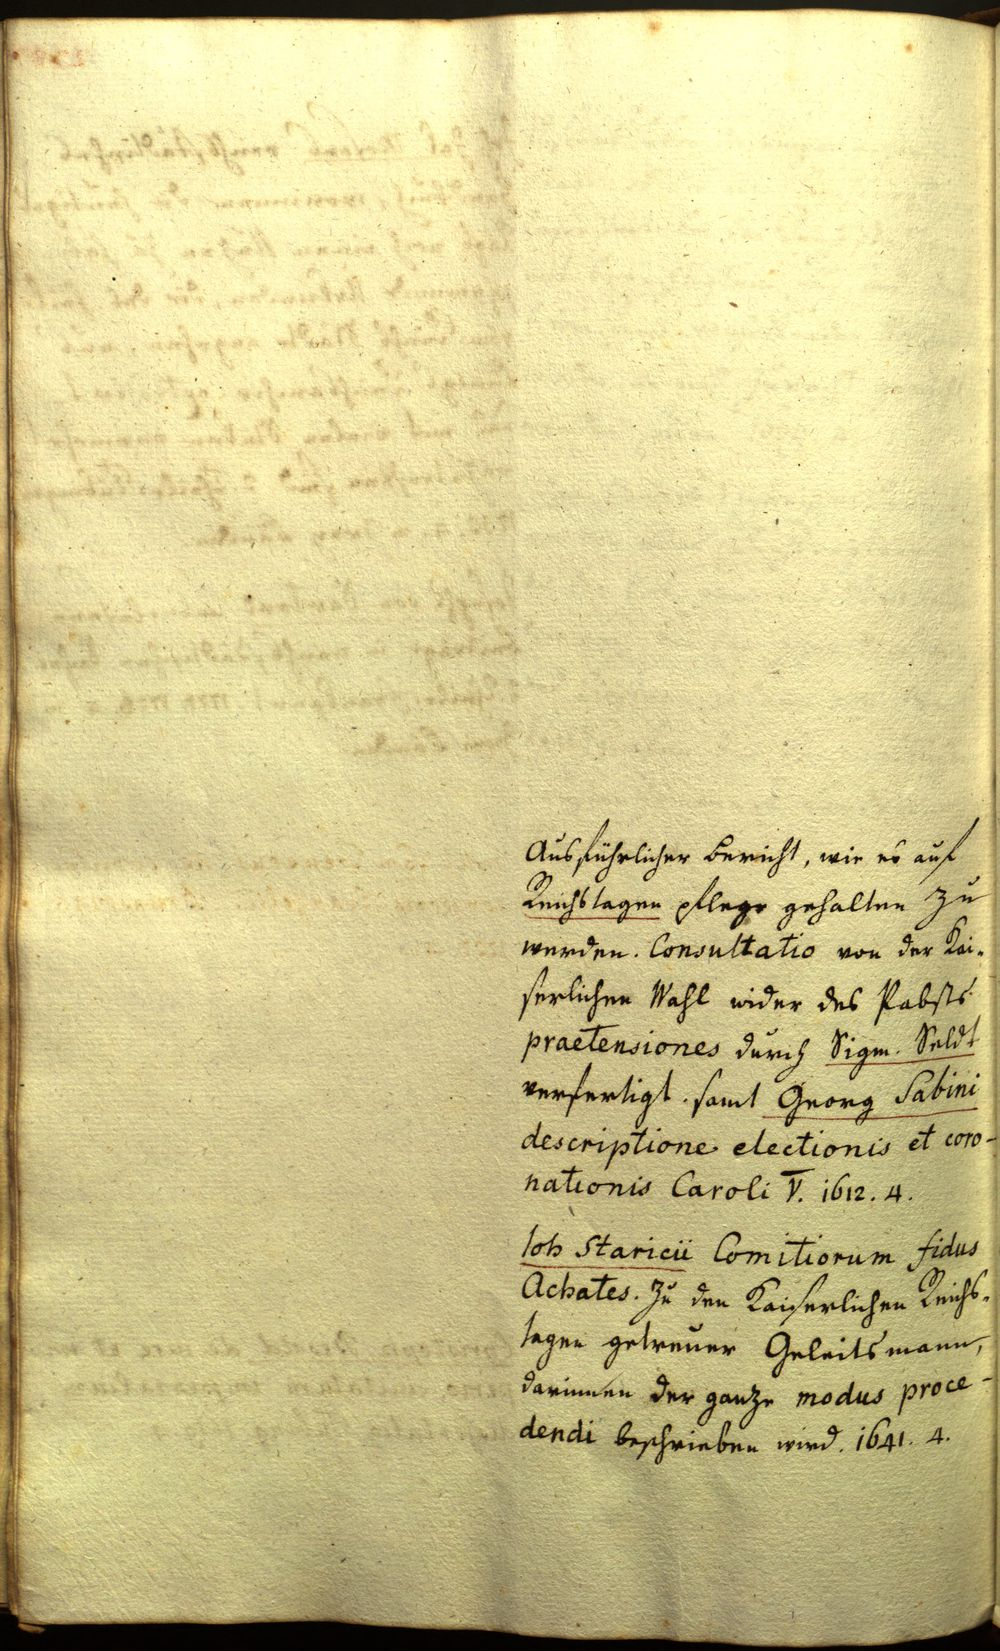 Ausführlicher bericht, wie es auf
Reichstagen pflege gehalten zu
werden. Consultatio von der Kai-
serlichen Wahl wider des Pabsts
praetensiones durch Sigm. Seldt
verfertigt. samt Georg Sabini
descriptione electionis et coro-
nationis Caroli V. 1612. 4.
Ioh Staricii Comitiorum fidus
Achates. Zu den Kaiserlichen Reichs-
tagen getreuer Geleitsmann,
darinnen der ganze modus proce-
dendi beschrieben wird. 1641. 4.